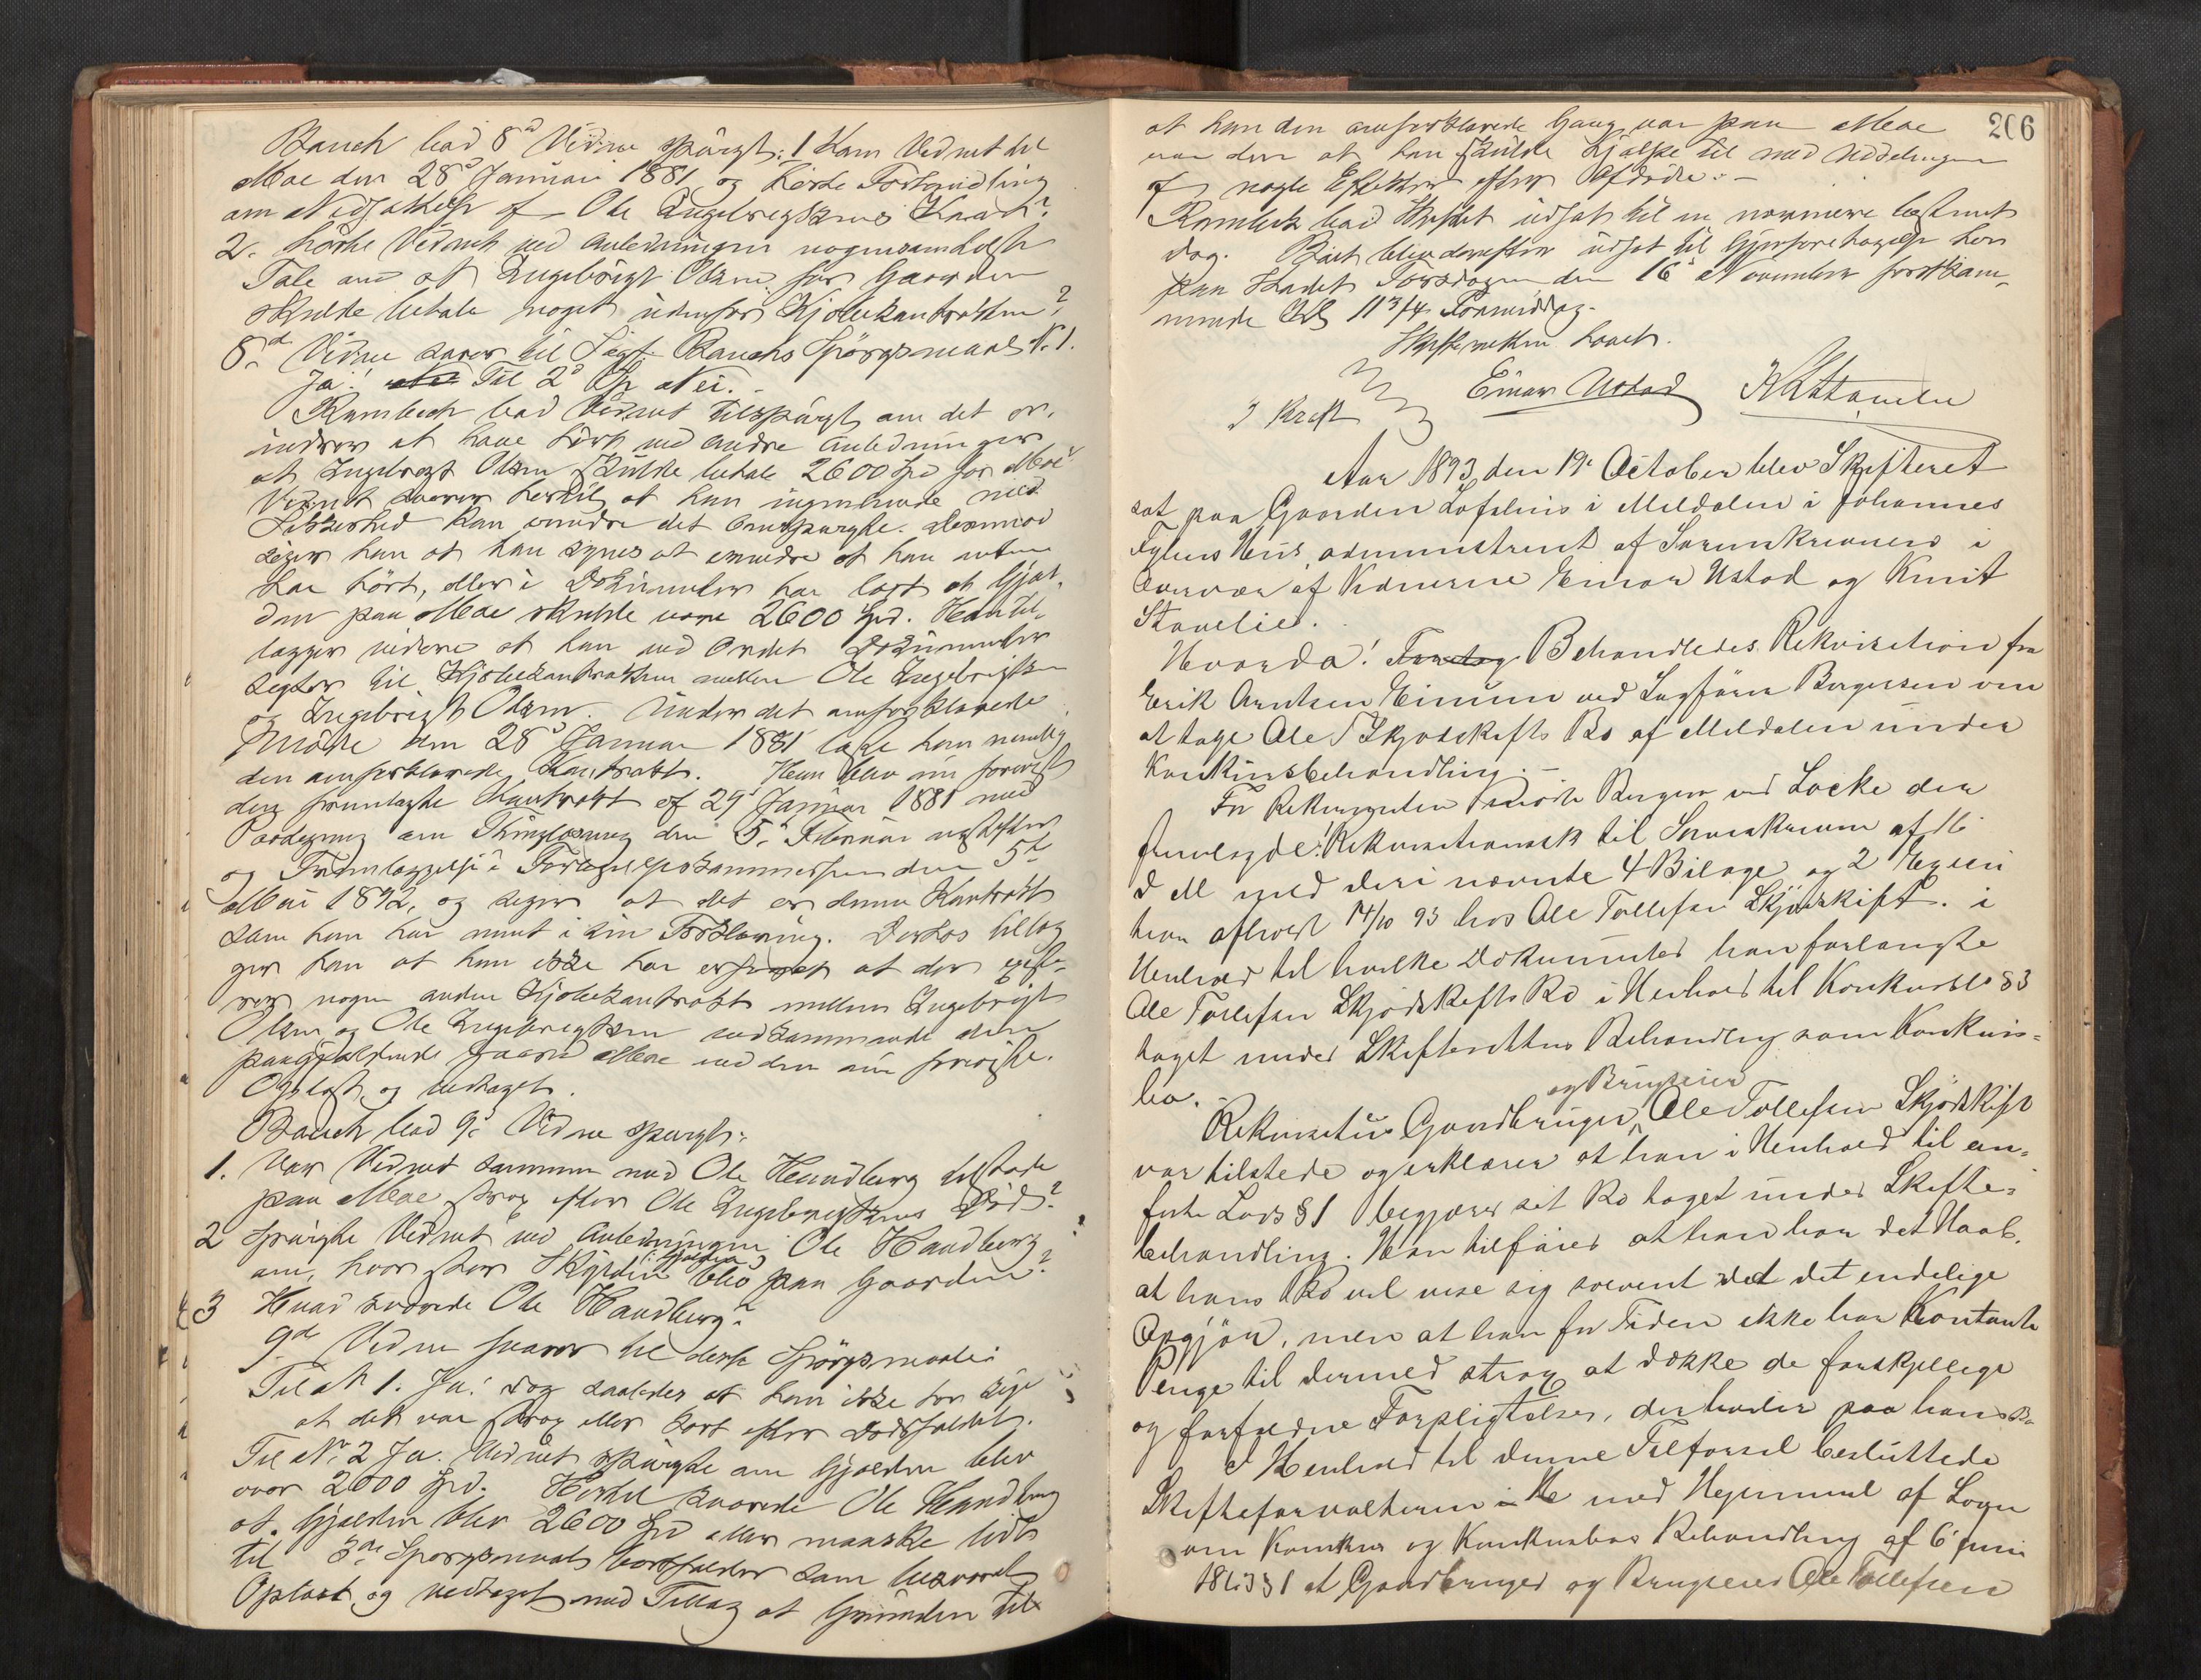 Bauch bad 8d Vidne spurgt: 1 Kom Vidnet til
Moe den 28d Januar 1881 og hørte Forhandling
om Udstedelse af Ole Ingebrigtsens Kaar?
2. hørte Vidnet ved Anledningen nogensomhelst
Tale om at Ingebrigt Olsen for Gaarden
skulde betale noget udenfor Kjøbekontrakten?
8d Vidne svarer til Sagf. Bauchs Spørgsmaal N. 1.
Ja! Til 2d Sp. Nei.
Rambech bad Vidnet tilspurgt om det er-
indrer at have hørt ved andre Anledninger
at Ingebrigt Olsen skulde betale 2600 Spd for Moe.
Vidnet svarer hertil at han ingenlunde med
Sikkerhed kan erindre det omspurgte. Derimod
siger han at han synes at erindre at han enten
har hørt, eller i Dokumenter har læst at Gjæl-
den paa Moe skulde være 2600 Spd. Han til-
lægger videre at han ved Ordet Dokumenter
sigter til Kjøbekontrakten mellem Ole Ingebrigtsen
og Ingebrigt Olsen. Under det omforklarede
Møde den 28d Januar 1881 læste han nemlig
den omforklarede Kontrakt. Han blev nu forevist
den fremlagte Kontrakt af 29d Januar 1881 med
Paategning om Thinglæsning den 5. Februar næstefter
og Fremlæggelse i Forligelseskommissionen den 5d
Mai 1892, og siger at det er denne Kontrakt
som han har ment i sin Forklaring. Derhos tillæg
ger han at han ikke har erfaret at der existe-
rer nogen anden Kjøbekontrakt mellem Ingebrigt
Olsen og Ole Ingebrigtsen vedkommende den
paagjældende Gaard Moe end den nu foreviste.
Oplæst og vedtaget.
Bauch bad 9d Vidne spurgt:
1. Var Vidnet sammen med Ole Haundberg tilstede
paa Moe strax efter Ole Ingebrigtsens Død?
2 Spurgte Vidnet ved Anledningen Ole Haundberg
om, hvor stor Skylden (: Gjælden) blev paa Gaarden?
3 Hvad svarede Ole Haundberg?
9de Vidne svarer til disse Spørgsmaale:
Til N 1. Ja! dog saaledes at han ikke tør sige
at det var strax eller kort efter Dødsfaldet.
Til N. 2 Ja. Vidnet spurgte om Gjælden blev
over 2000 Spd. Hertil svarede Ole Haundberg
at Gjælden blev 2600 Spd eller maaske lidt
til 3de Spørgsmaal bortfalder som besvaret
Oplæst og vedtaget med Tillæg at Grunden til
206
at han den omforklarede Gang var paa Moe
var den at han skulde hjælpe til med Uddelingen
af nogle Effekter efter Afdøde.
Rambech bad Skiftet udsat til en nærmere bestemt
dag. Boet blev derefter udsat til Gjenforetagelse her
paa Stedet Torsdagen den 16d November førstkom-
mende Kl 11 3/4 Formiddag.
Skifteretten hævet.
J Kraft Einar Ustad K Stavelie
Aar 1893, den 19. October blev Skifteret
sat paa Gaarden Løfshus i Meldalen i Johannes
Hus, administreret af Sorenskriveren i
Overvær af Vidnerne Einar Ustad og Knut
Stavelie.
Hvorda! Foretog Behandledes Rekvisition fra
Erik Arntsen Einum ved Sagfører Borgersen om
at tage Ole T Skjødskifts Bo af Meldalen under
Konkursbehandling.
For Rekvirenten mødte Borgersen ved Løcke der
fremlagde! Rekvisition til Sorenskriveren af 16
d M med deri nævnte 4 Bilage og 2 Exeku
tion afholdt 14/10 93 hos Ole Tollefsen Skjødskift. i
Henhold til hvilke Dokumenter han forlangte
Ole Tollefsen Skjødskifts Bo i Henhold til Konkursl § 3
taget under Skifterettens Behandling som Konkurs-
bo.
og Brugseier
Rekvisitus Gaardbruger Ole Tollefsen Skjødskift
var tilstede og erklærer at han i Henhold til an-
førte Lovs § 1 begjærer sit Bo taget under Skifte-
behandling. Han tilfører at han har det Haab,
at hans Bo vil vise sig solvent ved det endelige
Opgjør, men at han for Tiden ikke har Kontante
Penge til dermed strax at dække de forskjellige
og forfaldne Forpligtelser, der hviler paa hans Bo
I Henhold til denne Tilførsel besluttede
Skifteforvalteren i He med Hjemmel af Loven
om Konkurs og Konkursbos Behandling af 6 juni
1863 § 1 at Gaardbruger og Brugseier Ole Tollefsen